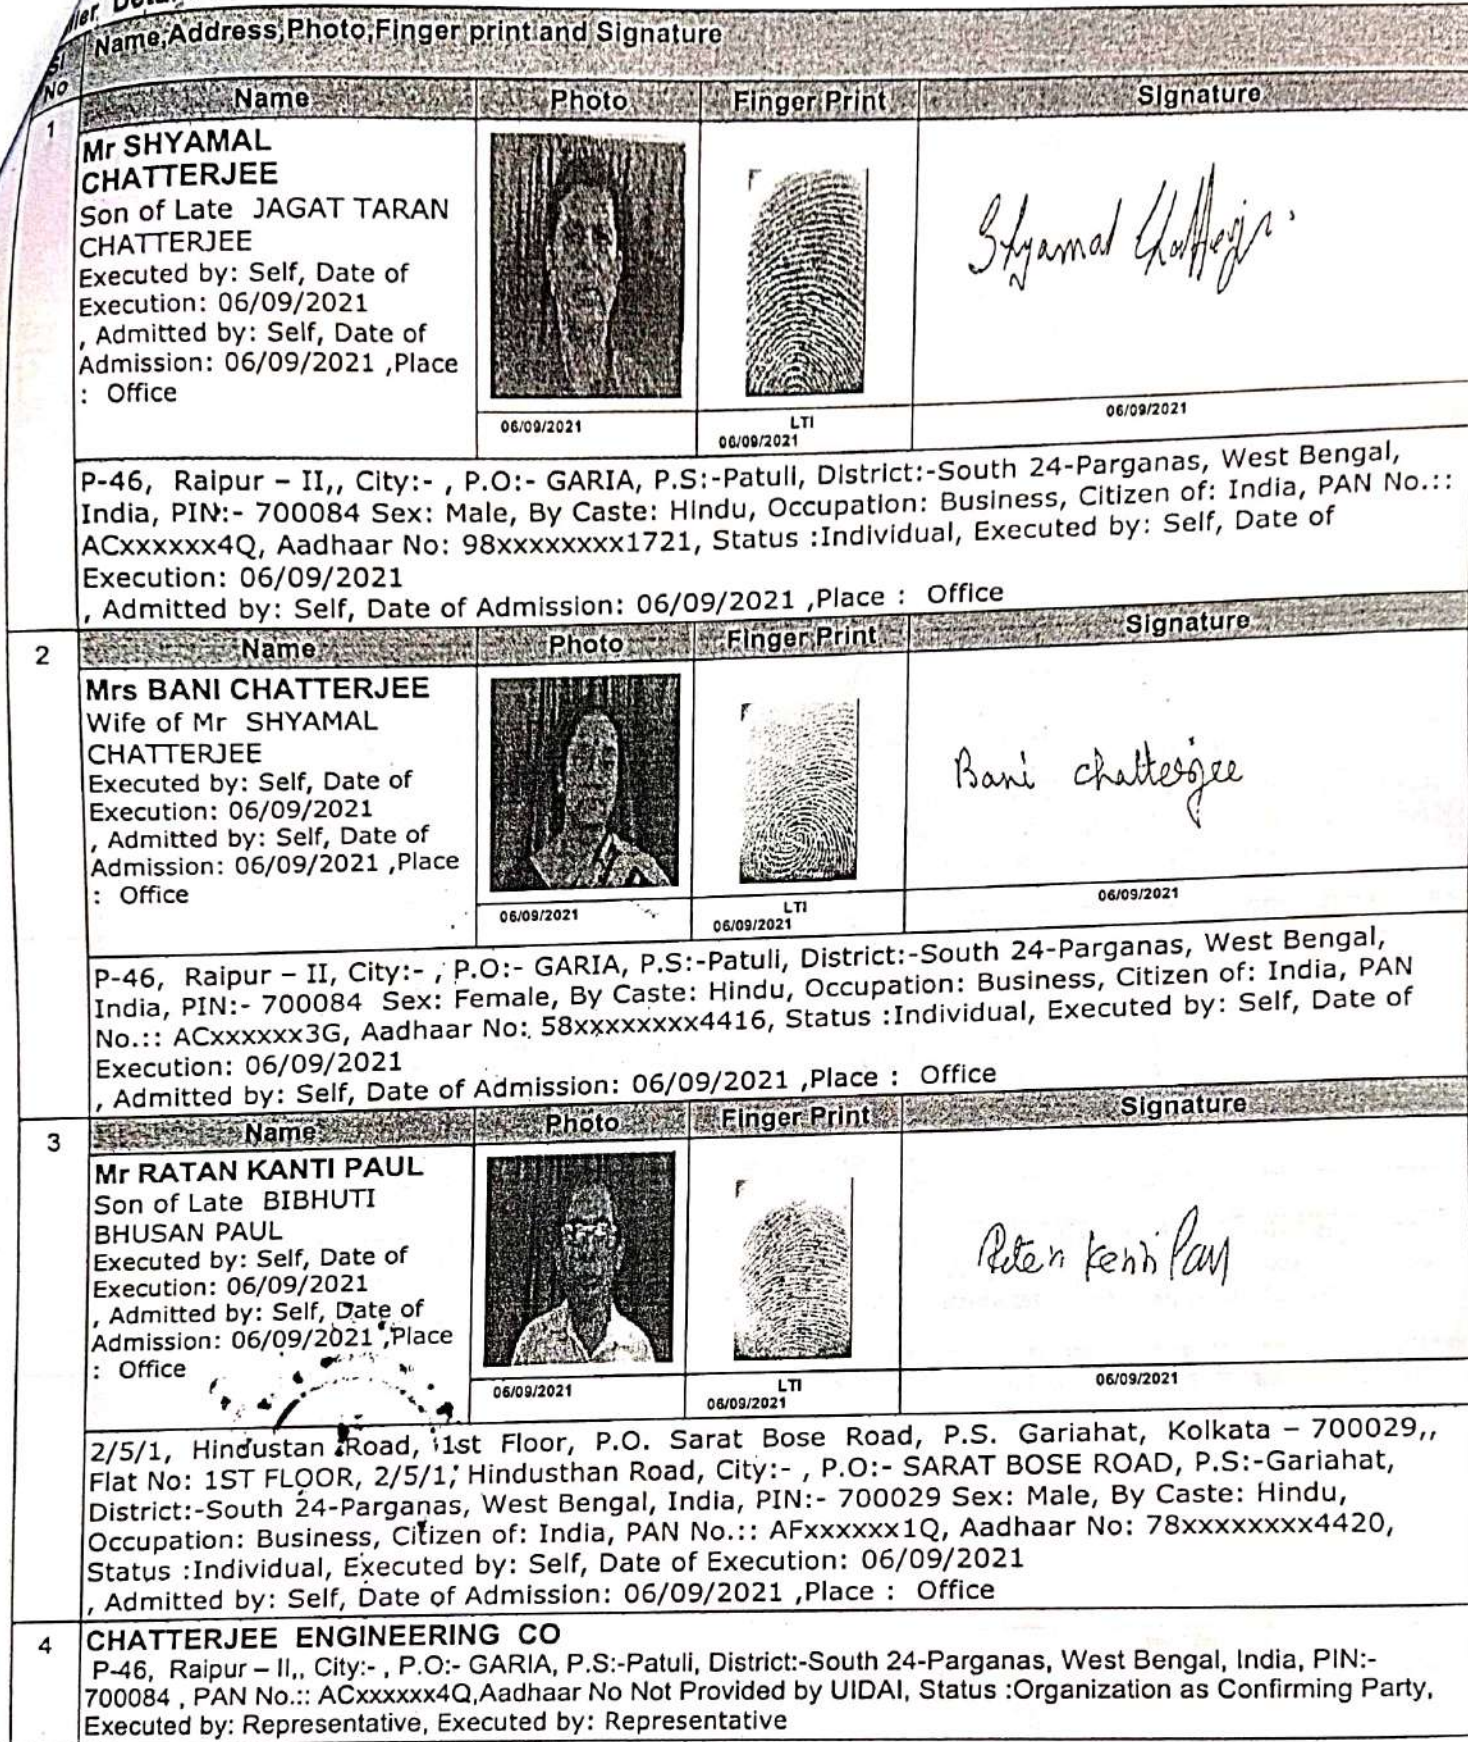 Name,Address,Photo,Finger print and Signature
Sl
No
Name Photo Finger Print Signature
1
Mr SHYAMAL
CHATTERJEE
Son of Late JAGAT TARAN
CHATTERJEE
Executed by: Self, Date of
Execution: 06/09/2021
, Admitted by: Self, Date of
Admission: 06/09/2021 ,Place
: Office
Shyamal Chatterjee
06/09/2021
LTI
06/09/2021
06/09/2021
P-46, Raipur – II,, City:- , P.O:- GARIA, P.S:-Patuli, District:-South 24-Parganas, West Bengal,
India, PIN:- 700084 Sex: Male, By Caste: Hindu, Occupation: Business, Citizen of: India, PAN No.::
ACxxxxxx4Q, Aadhaar No: 98xxxxxxxx1721, Status :Individual, Executed by: Self, Date of
Execution: 06/09/2021
, Admitted by: Self, Date of Admission: 06/09/2021 ,Place : Office
2
Name Photo Finger Print Signature
Mrs BANI CHATTERJEE
Wife of Mr SHYAMAL
CHATTERJEE
Executed by: Self, Date of
Execution: 06/09/2021
, Admitted by: Self, Date of
Admission: 06/09/2021 ,Place
: Office
Bani Chatterjee
06/09/2021
LTI
06/09/2021
06/09/2021
P-46, Raipur – II, City:- , P.O:- GARIA, P.S:-Patuli, District:-South 24-Parganas, West Bengal,
India, PIN:- 700084 Sex: Female, By Caste: Hindu, Occupation: Business, Citizen of: India, PAN
No.:: ACxxxxxx3G, Aadhaar No: 58xxxxxxxx4416, Status :Individual, Executed by: Self, Date of
Execution: 06/09/2021
, Admitted by: Self, Date of Admission: 06/09/2021 ,Place : Office
3
Name Photo Finger Print Signature
Mr RATAN KANTI PAUL
Son of Late BIBHUTI
BHUSAN PAUL
Executed by: Self, Date of
Execution: 06/09/2021
, Admitted by: Self, Date of
Admission: 06/09/2021 ,Place
: Office
Ratan Kanti Paul
06/09/2021
LTI
06/09/2021
06/09/2021
2/5/1, Hindustan Road, 1st Floor, P.O. Sarat Bose Road, P.S. Gariahat, Kolkata – 700029,,
Flat No: 1ST FLOOR, 2/5/1, Hindusthan Road, City:- , P.O:- SARAT BOSE ROAD, P.S:-Gariahat,
District:-South 24-Parganas, West Bengal, India, PIN:- 700029 Sex: Male, By Caste: Hindu,
Occupation: Business, Citizen of: India, PAN No.:: AFxxxxxx1Q, Aadhaar No: 78xxxxxxxx4420,
Status :Individual, Executed by: Self, Date of Execution: 06/09/2021
, Admitted by: Self, Date of Admission: 06/09/2021 ,Place : Office
4
CHATTERJEE ENGINEERING CO
P-46, Raipur – II,, City:- , P.O:- GARIA, P.S:-Patuli, District:-South 24-Parganas, West Bengal, India, PIN:-
700084 , PAN No.:: ACxxxxxx4Q,Aadhaar No Not Provided by UIDAI, Status :Organization as Confirming Party,
Executed by: Representative, Executed by: Representative